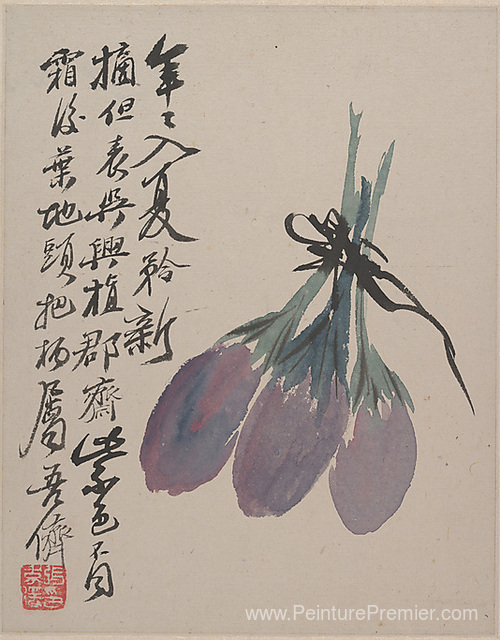 年〻入夏矜新
摘但表與興植郡齋紫色不
霜後葉地頭把柄屬吾儕
www.PeinturePremier.com